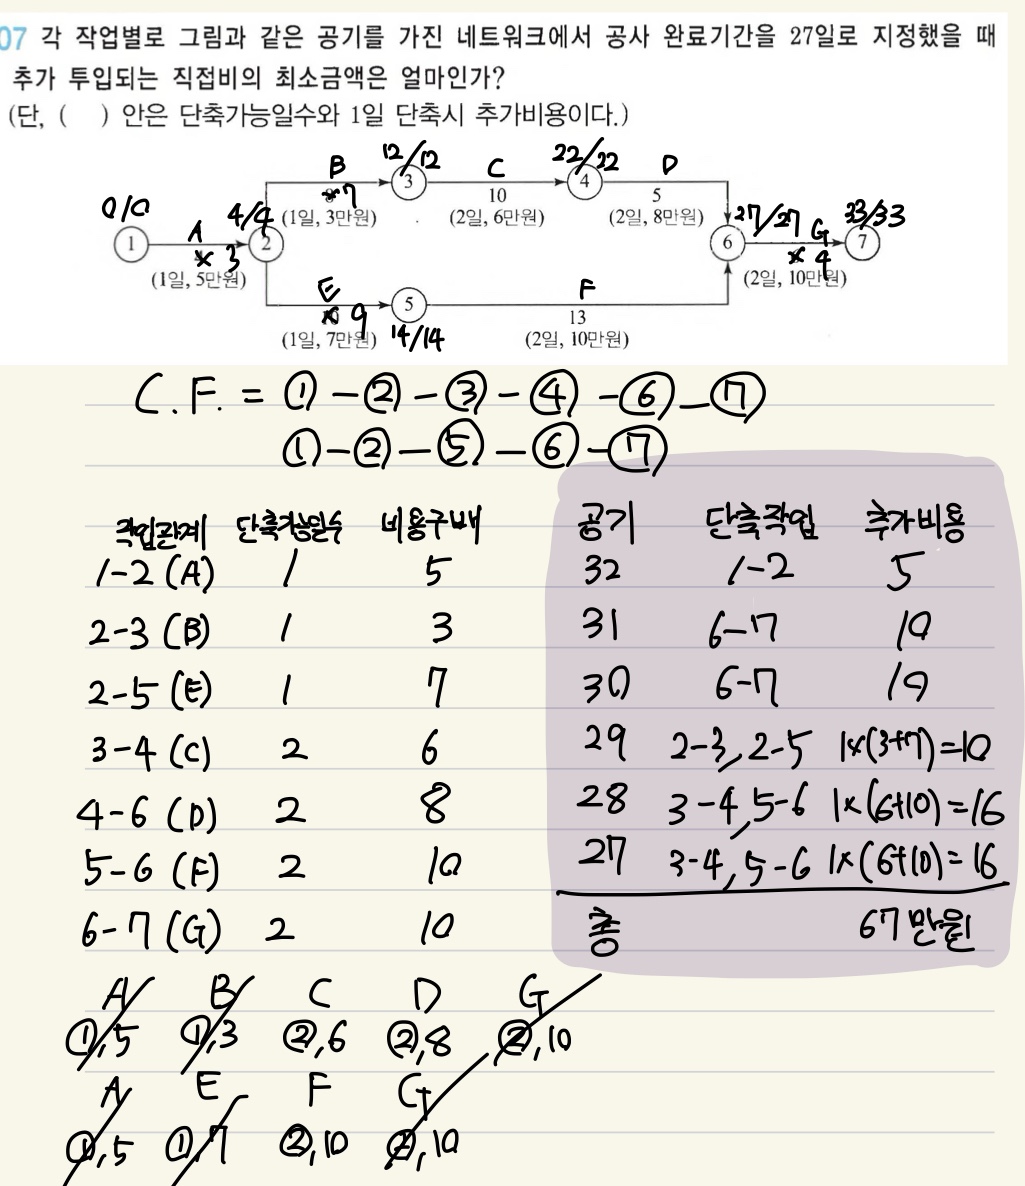 07 각 작업별로 그림과 같은 공기를 가진 네트워크에서 공사 완료기간을 27일로 지정했을 때
추가 투입되는 직접비의 최소금액은 얼마인가?
(단, ( ) 안은 단축가능일수와 1일 단축시 추가비용이다.)
B 12/12 C 22/22 D
7 3 10 4 5
0/0 A 4/4 (1일, 3만원) (2일, 6만원) (2일, 8만원) 27/27 G 33/33
1 3 2 6 4 7
(1일, 5만원) (2일, 10만원)
E F
9 5 13
(1일, 7만원) 14/14 (2일, 10만원)
C.F. = ①-②-③-④-⑥-⑦
①-②-⑤-⑥-⑦
작업관계 단축가능일수 비용구배 공기 단축작업 추가비용
1-2 (A) 1 5 32 1-2 5
2-3 (B) 1 3 31 6-7 10
2-5 (E) 1 7 30 6-7 10
3-4 (C) 2 6 29 2-3, 2-5 1×(3+7)=10
4-6 (D) 2 8 28 3-4, 5-6 1×(6+10)=16
5-6 (F) 2 10 27 3-4, 5-6 1×(6+10)=16
6-7 (G) 2 10 총 67만원
A B C D G
①,5 ①,3 ②,6 ②,8 ②,10
A E F G
①,5 ①,7 ②,10 ②,10